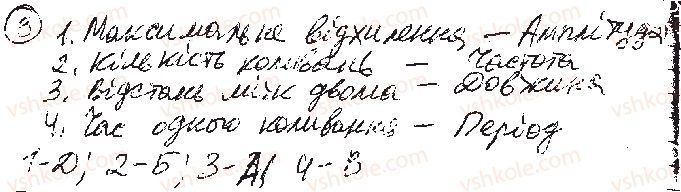 3 1. Максимальне відхилення – Амплітуда
2. Кількість коливань – Частота
3. Відстань між двома – Довжина
4. Час одного коливання – Період
1-Д; 2-Б; 3-А; 4-В